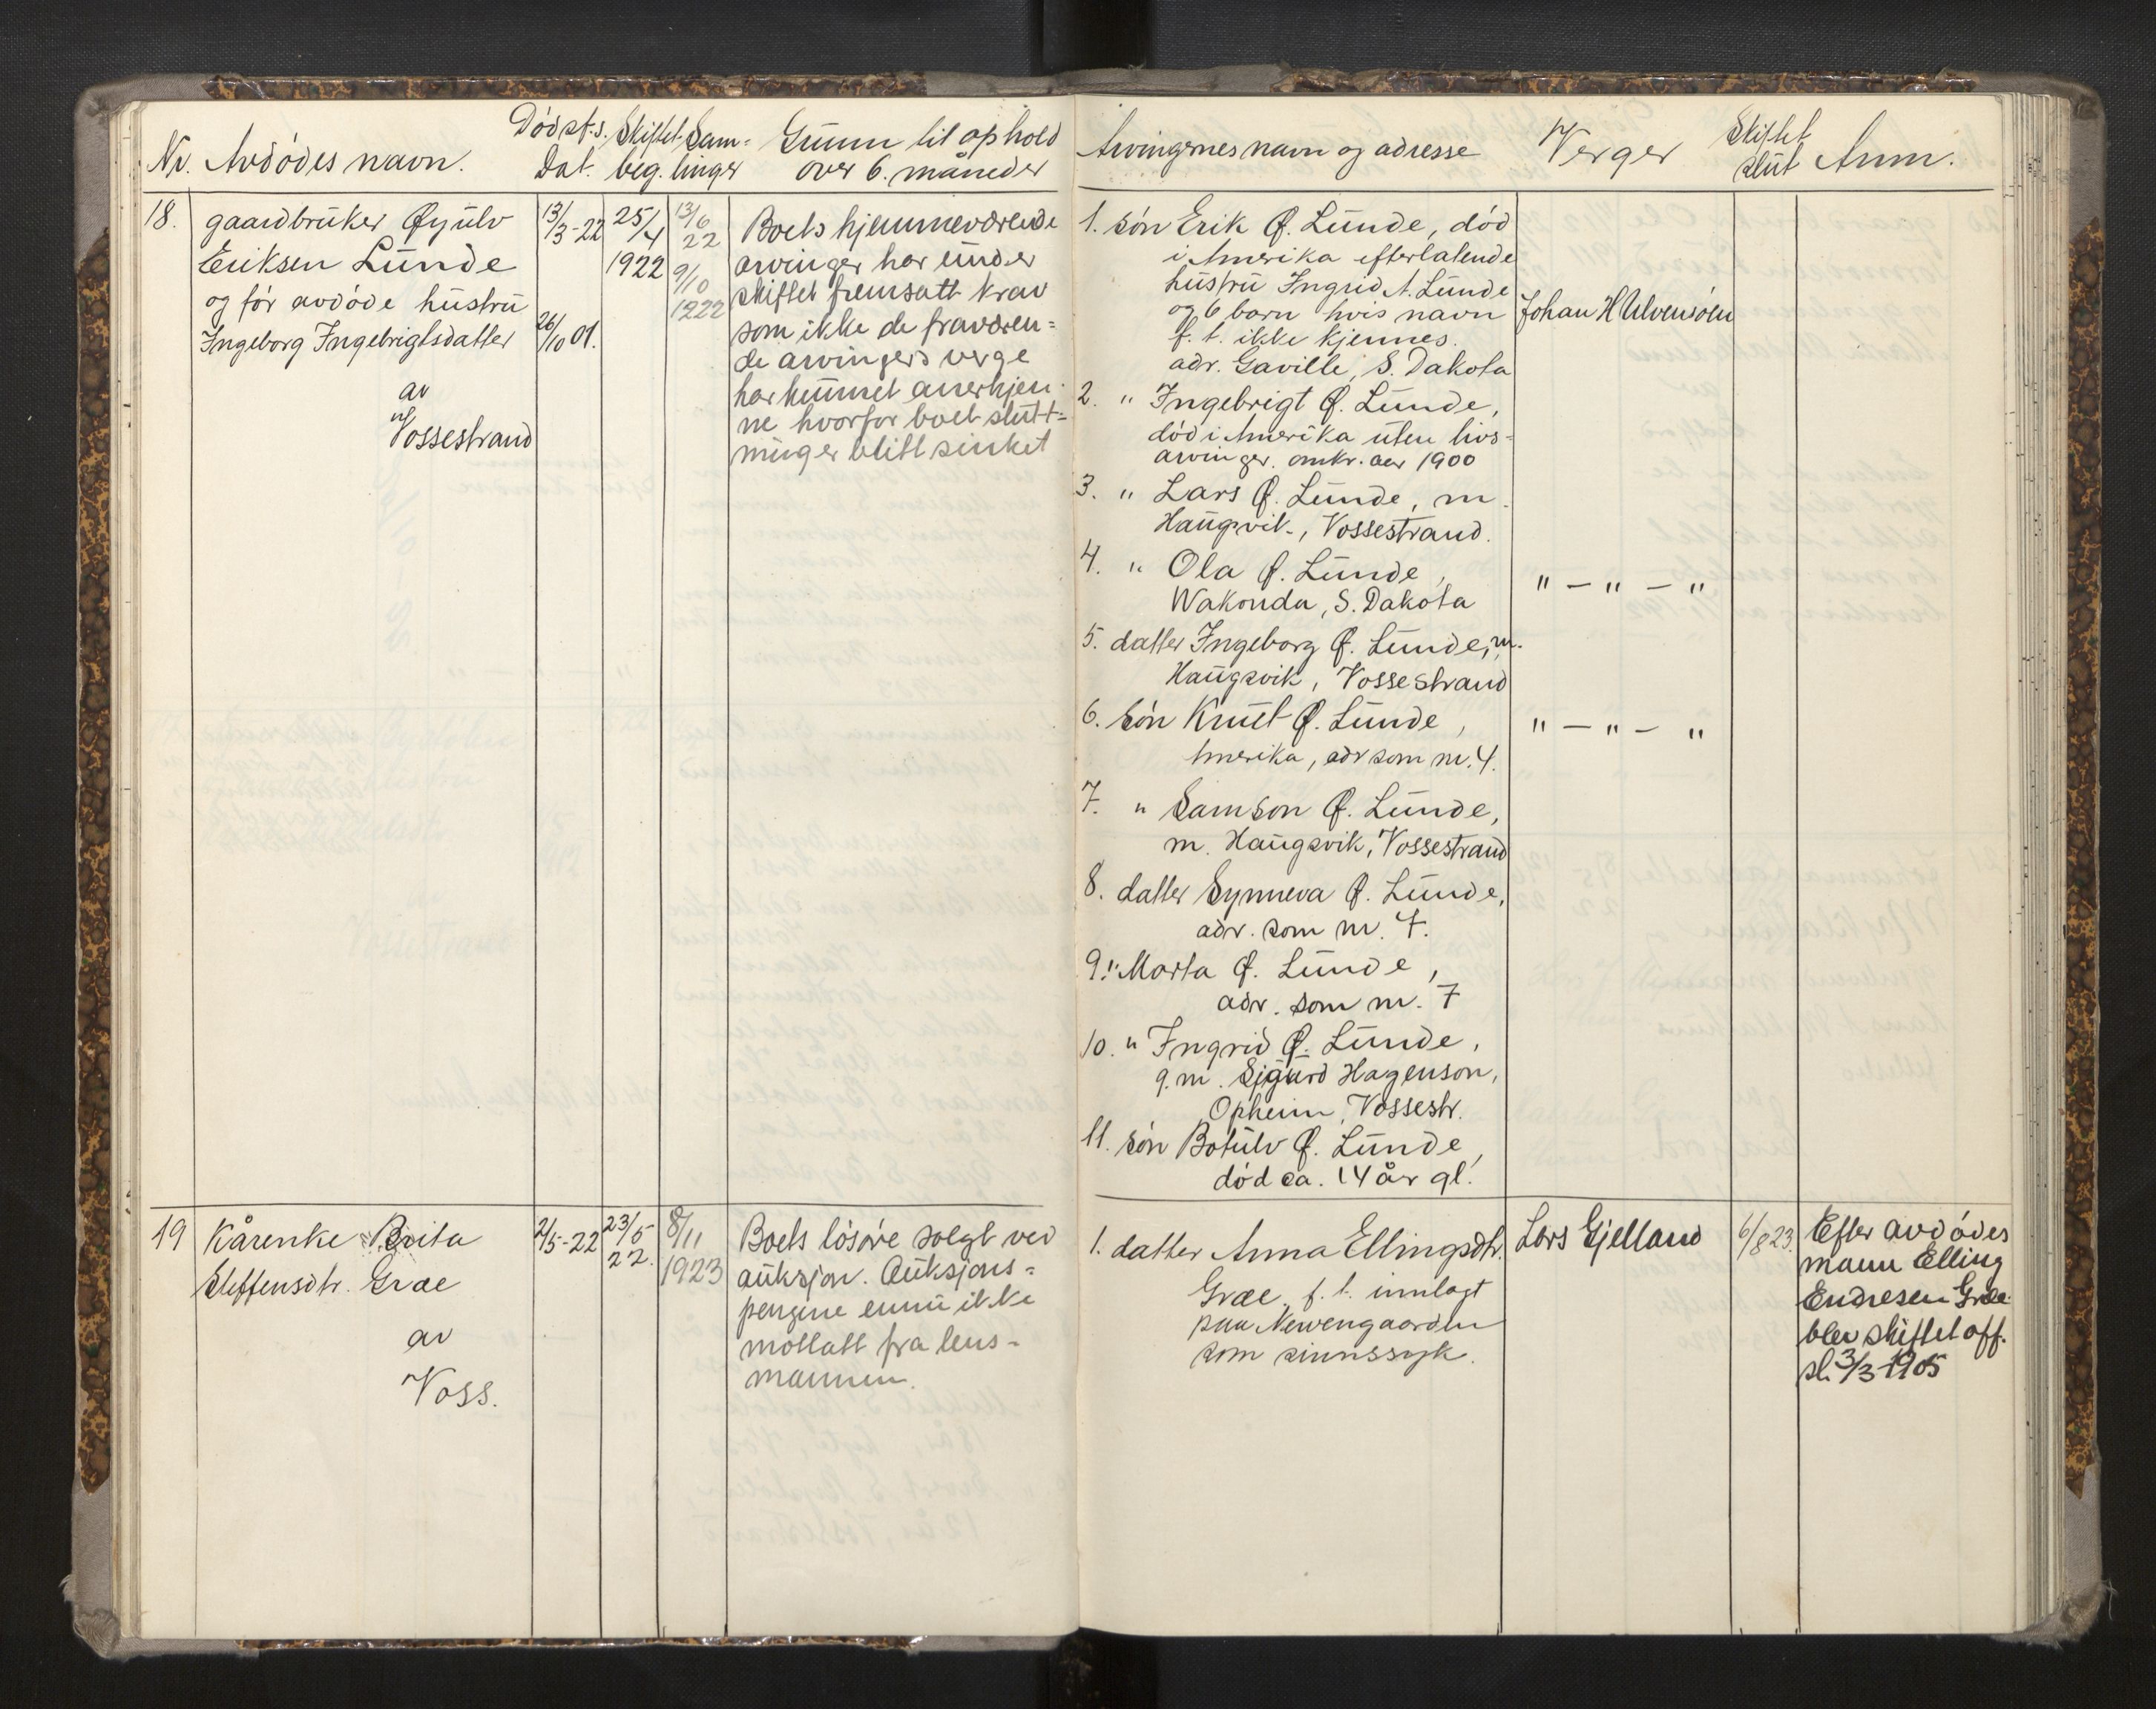 Nr. Avdödes navn.
Dödst.s. Dat.
Skiftet beg.
Sam= linger
Grunn til ophold
over 6. måneder
18.
gaardbruker Øyulv
Eriksen Lunde
og för avdöde hustru
Ingeborg Ingebrigtsdatter
av
Vossestrand
13/3-22
26/10 01.
25/4
1922
13/6
22
9/10
1922
Boets hjemmeværende
arvinger har under
skiftet fremsatt krav
som ikke de fraværen=
de arvingers verge
har kunnet anerkjen-
ne hvorfor boet slutt=
ning er blitt sinket
19
Kårenke Brita
Steffensdtr. Græe
av
Voss.
2/5-22
23/5
22.
8/11
1923
Boets lösöre solgt ved
auksjon. Auksjons=
pengene ennu ikke
mottatt fra lens-
mannen.
Arvingernes navn og adresse
Verger
Skiftet
slut
Anm.
1. sön Erik Ø. Lunde, död
i Amerika efterlatende
hustru Ingrid A. Lunde
og 6 barn hvis navn
f. t. ikke kjennes.
adr. Gaville, S. Dakota
Johan H Ulvensöen
2. " Ingebrigt Ø. Lunde,
död i Amerika uten livs=
arvinger. omkr. aar 1900
3. " Lars Ø. Lunde, m.
Haugsvik, Vossestrand.
4. " Ola Ø. Lunde,
Wakonda, S. Dakota
" — " — "
5. datter Ingeborg Ø. Lunde, m.
Haugsvik, Vossestrand
6. Sön Knut Ø. Lunde,
Amerika, adr som nr. 4.
" — " — "
7. " Samson Ø. Lunde,
m. Haugsvik, Vossestrand
8. datter Synneva Ø. Lunde,
adr. som nr. 7.
9. " Marta Ø. Lunde,
adr. som nr. 7
10. " Ingrid Ø. Lunde,
g. m. Sjgurd Hagenson,
Opheim, Vossestr.
11. sön Botulv Ø. Lunde,
död ca. 14 år gl.
1. datter Anna Ellingsdtr.
Græe, f. t. innlagt
paa Nevengaarden
som sinnssyk.
Lars Gjelland
6/8 23.
Efter avdödes
mann Elling
Endresen Græe
blev skiftet off.
sl. 3/3-1905